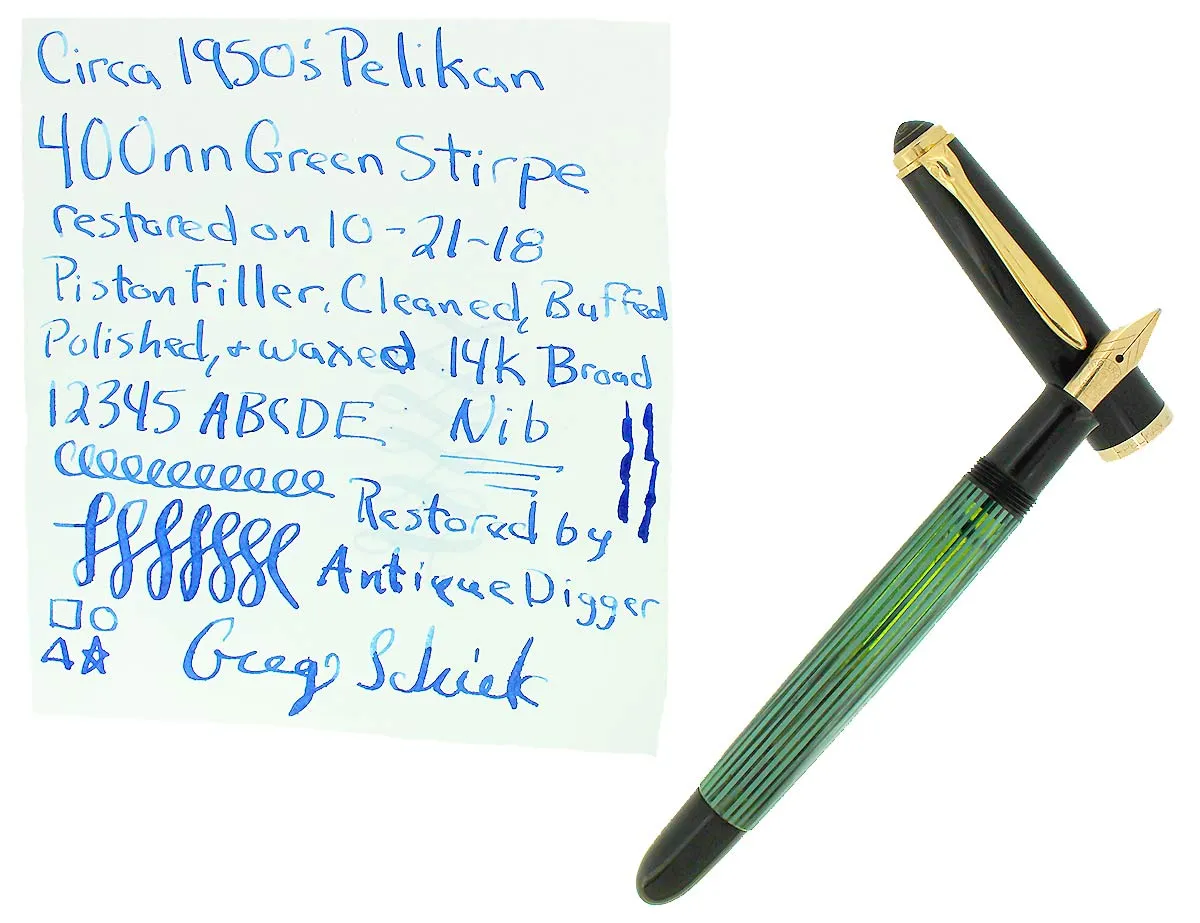 Circa 1950's Pelikan
400nn Green Stirpe
restored on 10-21-18
Piston Filler, Cleaned, Buffed
Polished, + waxed 14k Broad
12345 ABCDE Nib
Restored by
Antique Digger
Greg Schiek